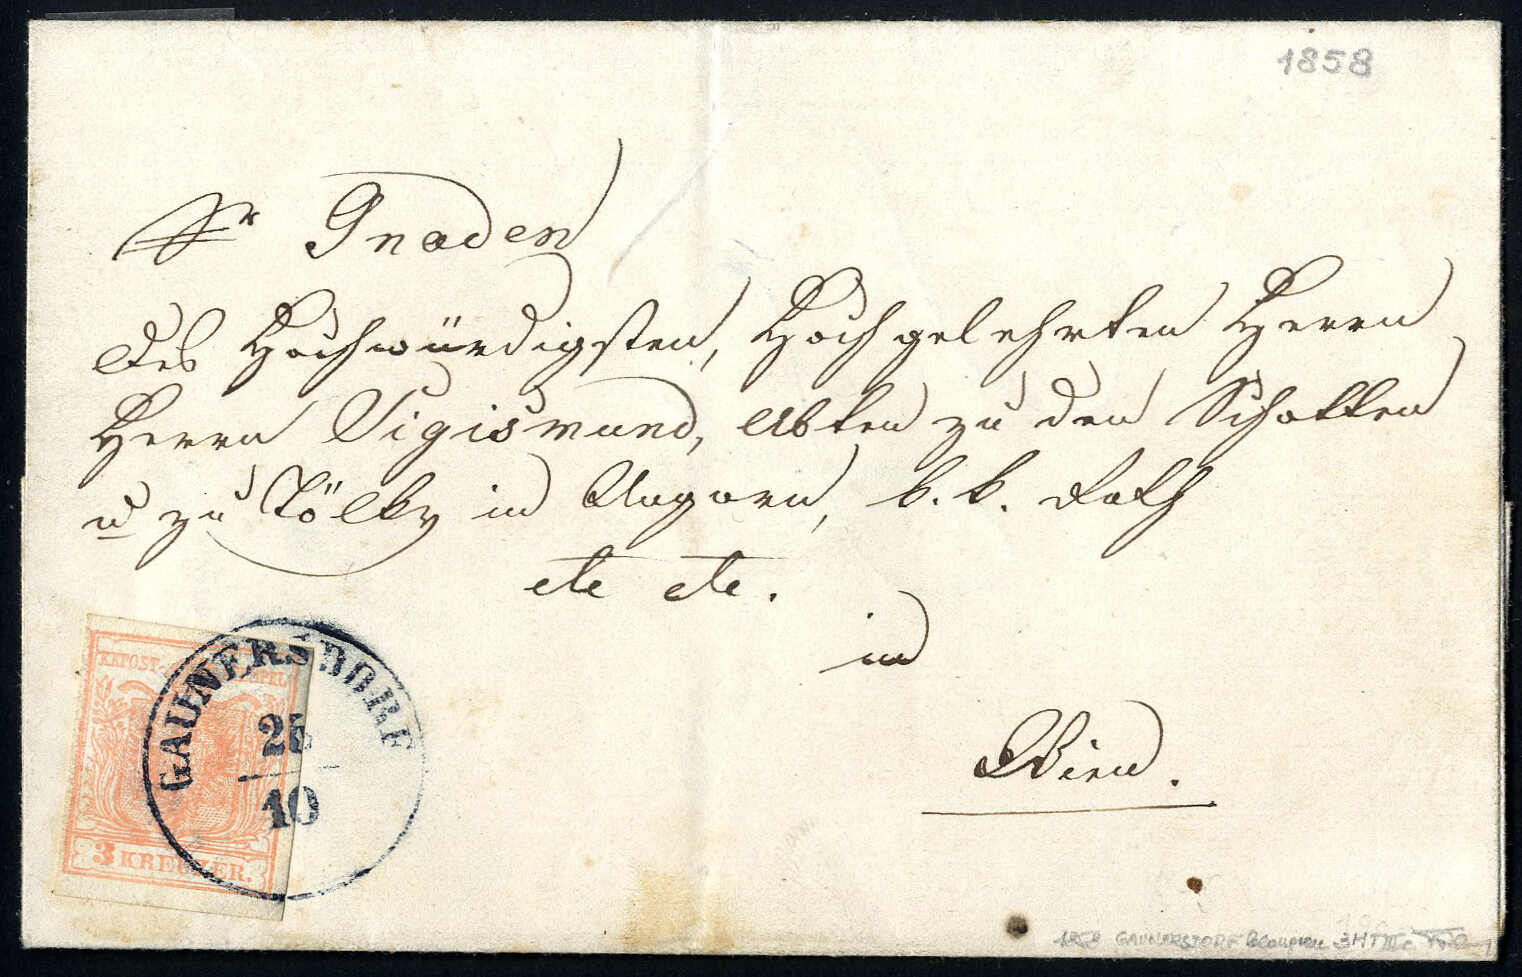 1858
Sr Gnaden
des Hochwürdigsten, Hochgelehrten Herrn
Herrn Sigismund, Abten zu den Schotten
u zu Tölky in Ungarn, k. k. Rath
etc etc.
in
Wien.
KKPOST-STEMPEL
3 KREUZER.
GAUNERSDORF
10
GAUNERSTORF 3HTIIIc